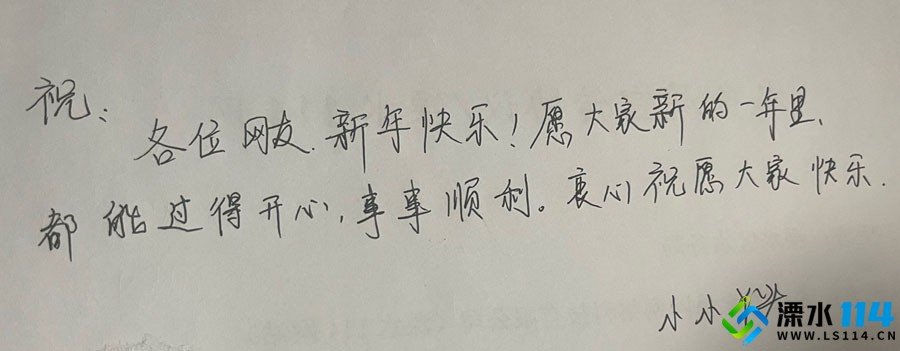 祝：
各位网友.新年快乐！愿大家新的一年里、
都能过得开心,事事顺利。衷心祝愿大家快乐.
小小
溧水114
WWW.LS114.CN